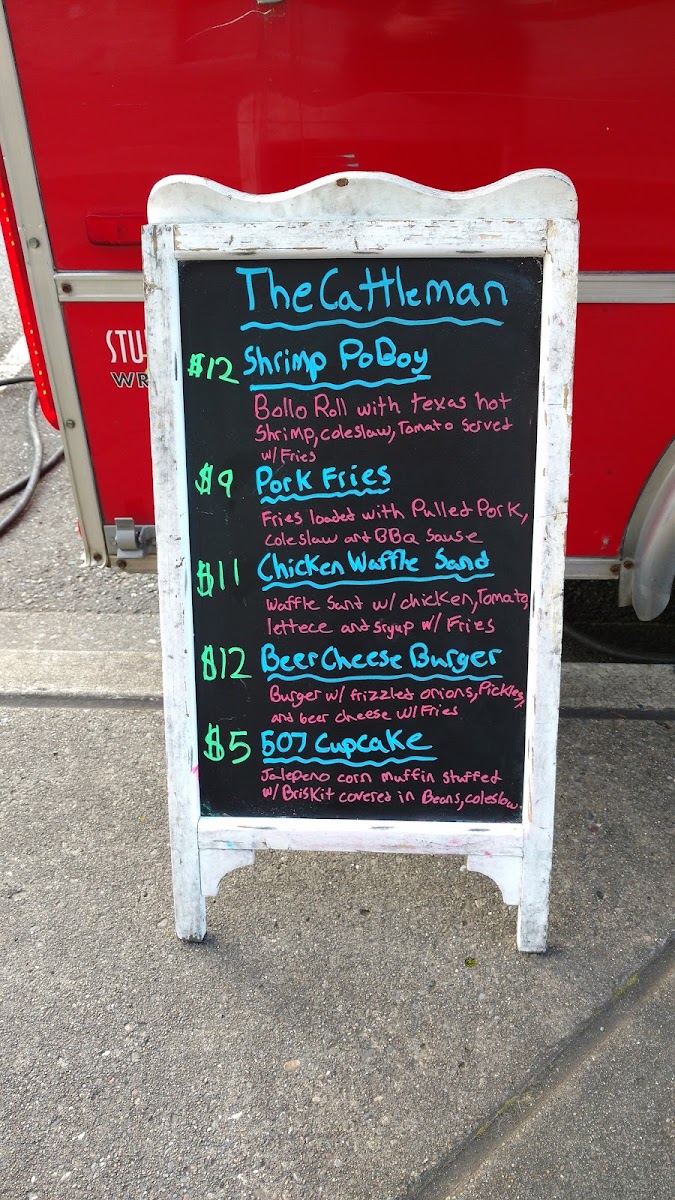 The Cattleman
$12 Shrimp PoBoy
Bollo Roll with texas hot
Shrimp, coleslaw, Tomato served
w/ Fries
$9 Pork Fries
Fries loaded with Pulled Pork,
coleslaw and BBQ Sause
$11 Chicken Waffle Sand
Waffle Sand w/ chicken, Tomato,
lettece and sryup w/ Fries
$12 Beer Cheese Burger
Burger w/ frizzled onions, Pickles,
and beer cheese w/ Fries
$5 507 Cupcake
Jalepeno corn muffin stuffed
w/ Briskit covered in Beans, coleslaw